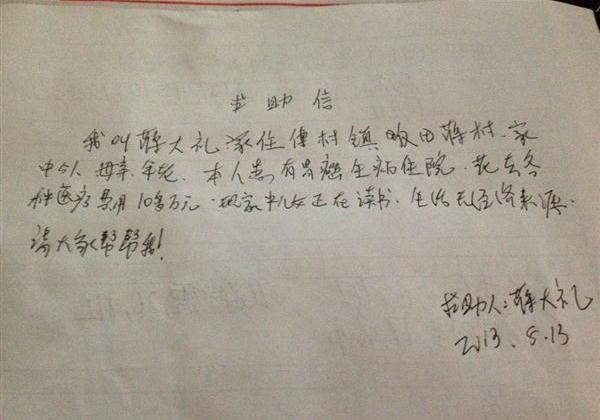 求助信
我叫蒋大礼家住傅村镇畈田蒋村.家
中今人 母亲年纪. 本人患有胃癌生病住院. 花去各
种医疗费用10多万元.现家中儿女正在读书.生活无经济来源.
请大家帮帮我!
求助人:蒋大礼
2013.5.13